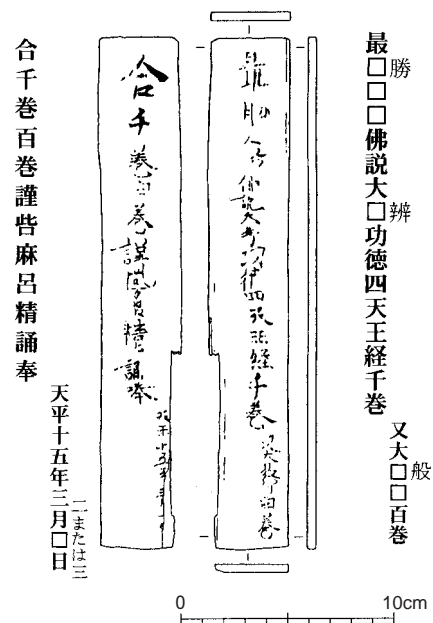 最□□□佛説大□功徳四天王経千巻
勝
辨
又大□□百巻
般
合千巻百巻謹呰麻呂精誦奉
天平十五年三月□日
二または三
0 10cm